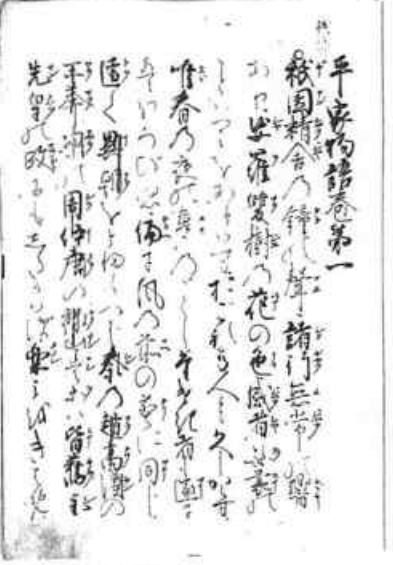 平家物語巻第一
祇園精舎乃鐘の聲諸行無常の響
あり娑羅雙樹乃花の色盛者必衰の
ことわりをあらはすおこれる人も久しからす
唯春乃夜の夢乃ことしたけき者も遂に
ほろひぬ偏に風乃前の塵に同し
遠く異朝をとふらへは秦乃趙高漢の
王莽梁の周伊唐の皆舊主
先皇の政にもしたかはす楽みをきはめ